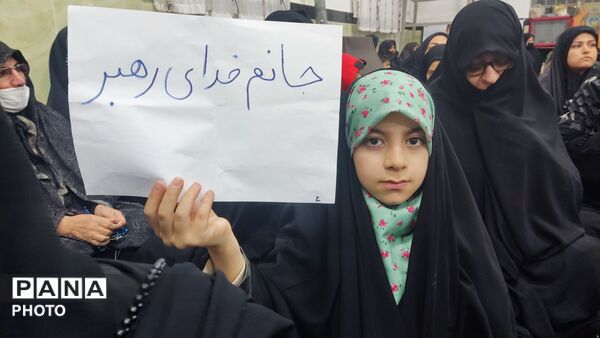 جانم فدای رهبر
PANA
PHOTO